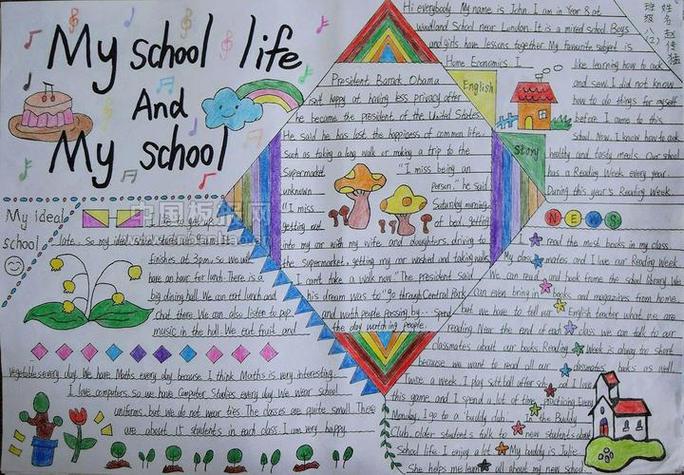 My school life
And
My school
姓名
班级 八(2)
Hi everybody. My name is John. I am in Year 8 at
Woodland School near London. It is a mixed school. Boys
and girls have lessons together. My favourite subject is
Home Economics. I like learning how to cook
and sew. I did not know
how to do things for myself
before I came to this
school. Now, I know how to cook
healthy and tasty meals. Our school
has a Reading Week every year.
During this year's Reading Week,
English
story
President Barack Obama
is not happy at having less privacy after
he became the president of the United States.
He said he has lost the happiness of common life,
such as taking a long walk or making a trip to the
supermarket. "I miss being an
unknown person," he said.
"I miss Saturday morning,
getting out of bed, getting
into my car with my wife and daughters, driving to
the supermarket, getting my car washed and taking walks.
I can't take a walk now." The president said
his dream was to "go through Central Park
and watch people passing by... spend
the day watching people.
NEWS
I read the most books in my class.
My classmates and I love our Reading Week.
We can read and book from the school library. We
can even bring in books and magazines from home,
but we have to tell our English teacher what we are
reading. Near the end of each class we can talk to our
classmates about our books. Reading Week is always too short
because we want to read all our classmates' books as well.
Twice a week I play softball after school and I love
this game and I spend a lot of time practicing. Every
Monday, I go to a 'buddy club'. In the Buddy
Club, older students talk to new students about
school life. I enjoy a lot. My buddy is Julie.
She helps me learn all about my new school.
My ideal
school
get up
late, so my ideal school starts
finishes at 3pm, so we
have an hour for lunch. There is a
big dining hall. We can eat lunch and
chat there. We can also listen to pop
music in the hall. We eat fruit and
vegetables every day. We have Maths every day because I think Maths is very interesting.
I love computers, so we have Computer Studies every day. We wear school
uniforms, but we do not wear ties. The classes are quite small. There
are about 15 students in each class. I am very happy.